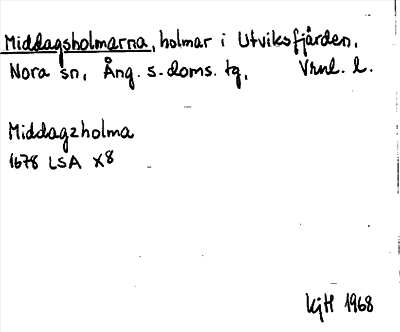 Middagsholmarna, holmar i Utviksfjärden,
Nora sn, Ång. s. doms. tg, Vrnl. l.
Middagzholma
1678 LSA X8
KjH 1968